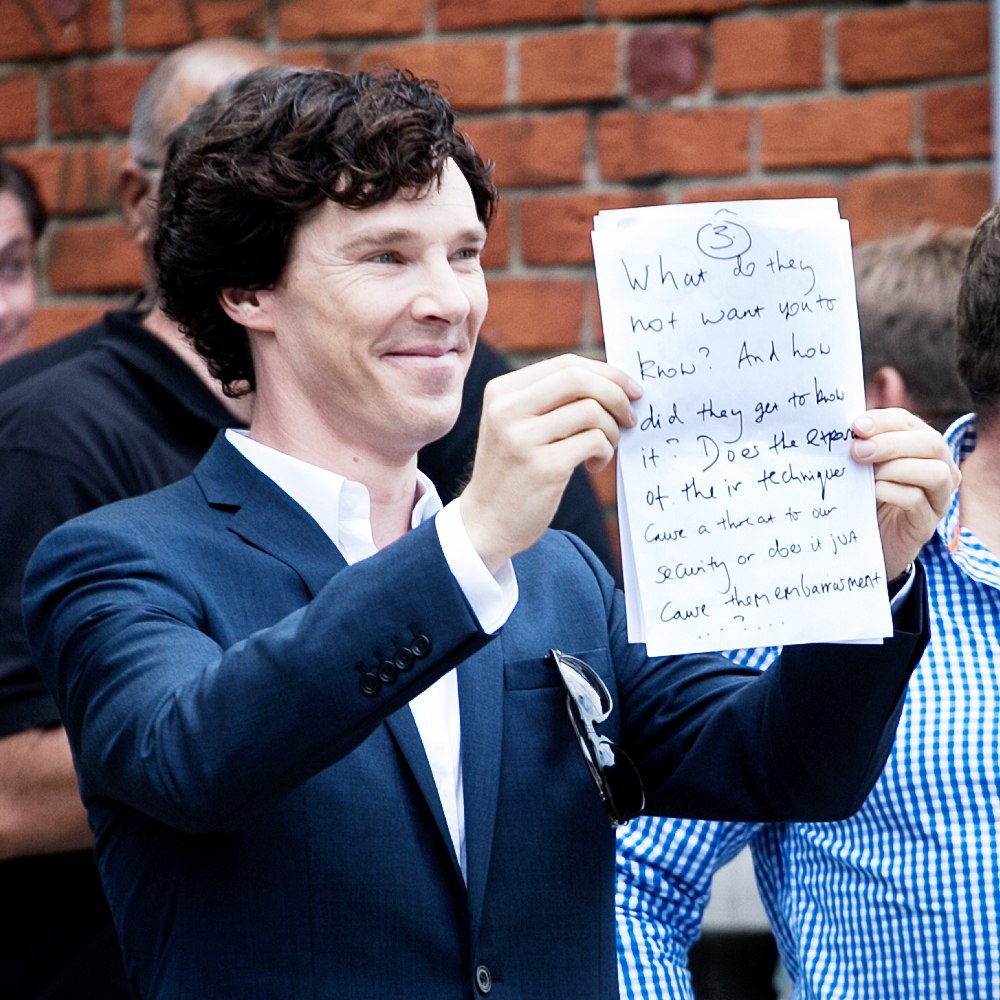 3.
What do they
not want you to
know? And how
did they get to know
it? Does the
of their techniques
cause a threat to our
security or does it just
cause them embarrassment
...?....